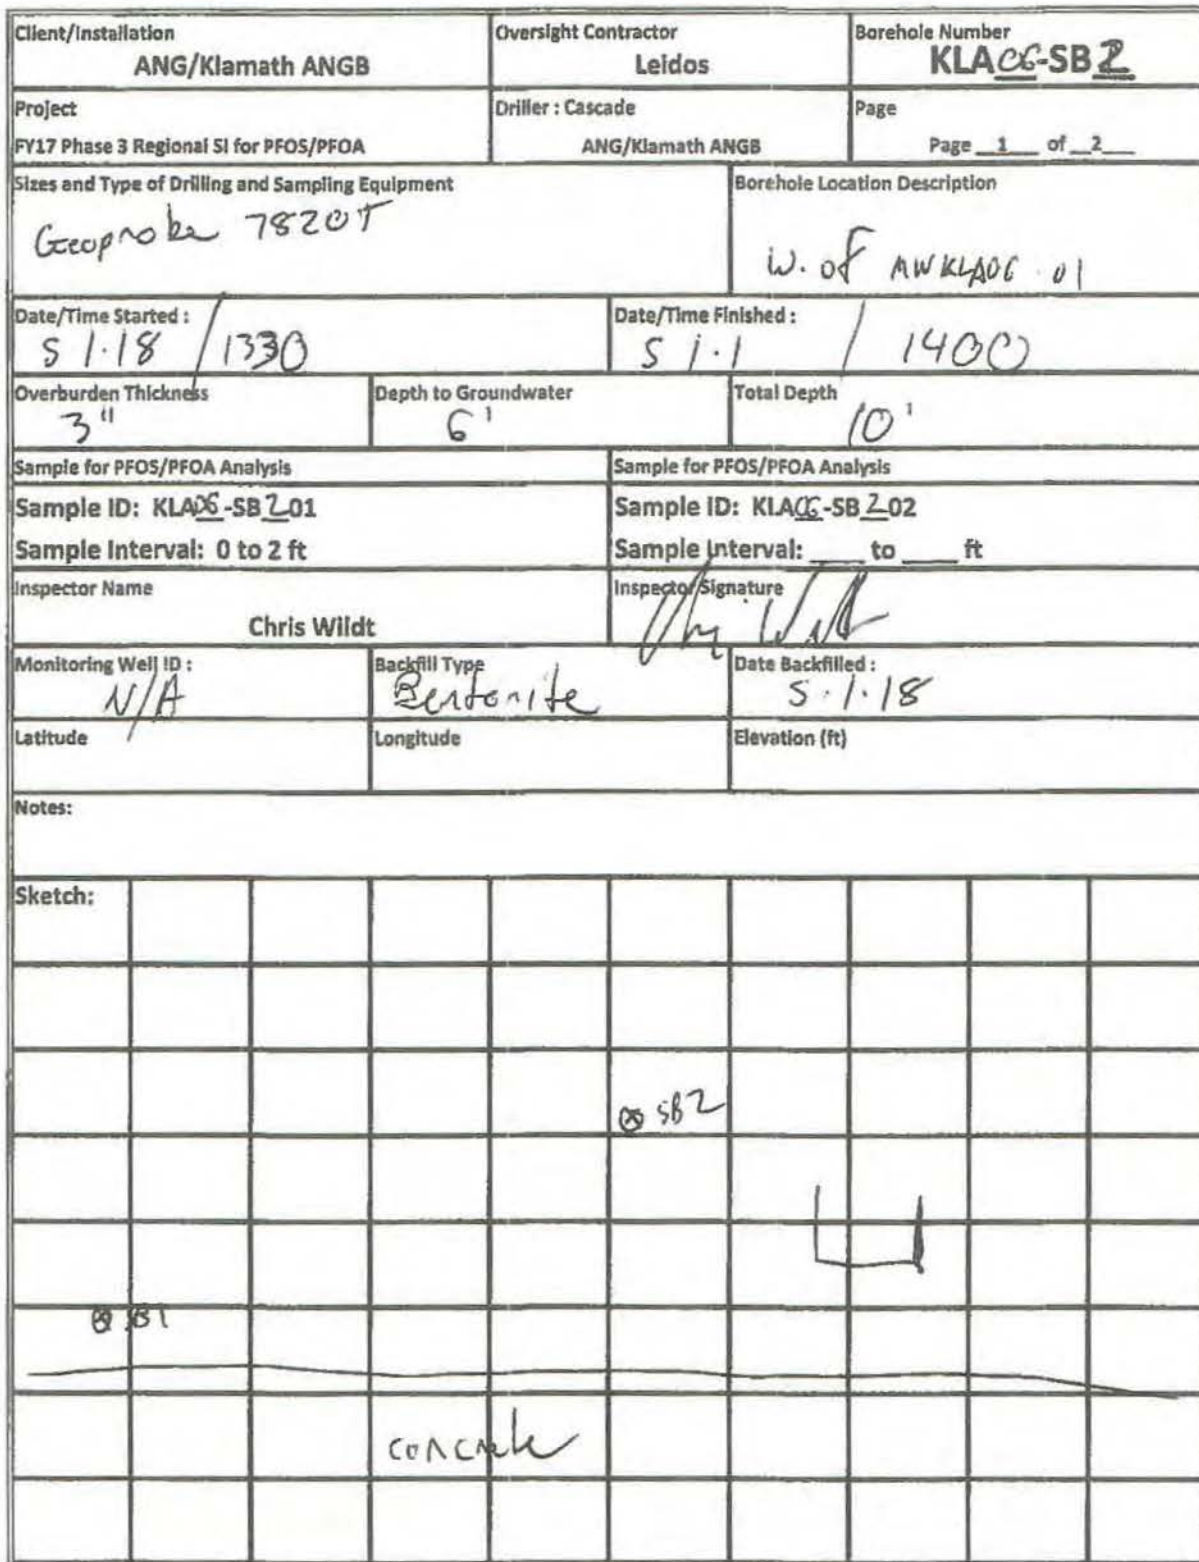 Client/Installation
ANG/Klamath ANGB
Oversight Contractor
Leidos
Borehole Number
KLA06-SB2
Project
FY17 Phase 3 Regional SI for PFOS/PFOA
Driller : Cascade
ANG/Klamath ANGB
Page
Page 1 of 2
Sizes and Type of Drilling and Sampling Equipment
Geoprobe 7820T
Borehole Location Description
W. of MWKLA06-01
Date/Time Started :
5 1.18 / 1330
Date/Time Finished :
5 1.1 / 1400
Overburden Thickness
3"
Depth to Groundwater
6'
Total Depth
10'
Sample for PFOS/PFOA Analysis
Sample for PFOS/PFOA Analysis
Sample ID: KLA06-SB201
Sample Interval: 0 to 2 ft
Sample ID: KLA06-SB202
Sample Interval: ____ to ____ ft
Inspector Name
Chris Wildt
Inspector Signature
Monitoring Well ID :
N/A
Backfill Type
Bentonite
Date Backfilled :
5.1.18
Latitude
Longitude
Elevation (ft)
Notes:
Sketch:
SB2
SB1
concrete